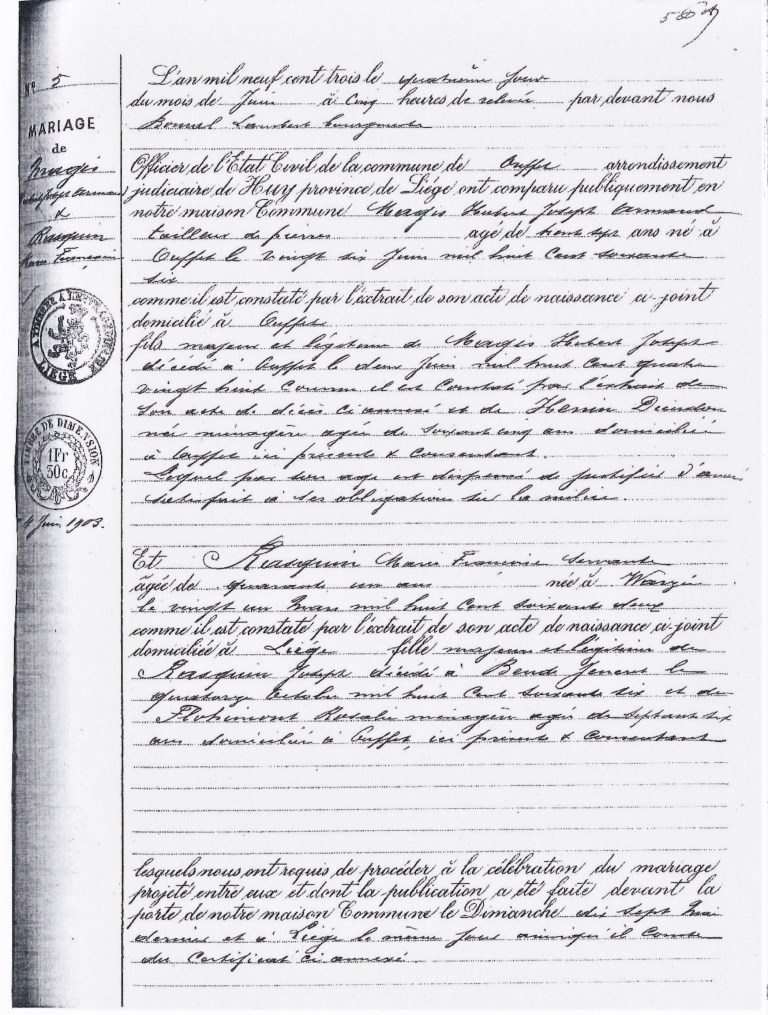 Nº 5
MARIAGE
de
Magis
Hubert Joseph Armand
&
Rasquin
Marie Françoise
TIMBRE DE DIMENSION
1Fr
30c.
4 Juin 1903.
L'an mil neuf cent trois le quatrième jour
du mois de Juin à cinq heures de relevée par devant nous
Lambert bourgmestre
Officier de l'Etat Civil de la commune de Ouffet arrondissement
judiciaire de Huy province de Liége ont comparu publiquement en
notre maison Commune Magis Hubert Joseph Armand
tailleur de pierres agé de trente sept ans né à
Ouffet le vingt six Juin mil huit cent soixante
six
comme il est constaté par l'extrait de son acte de naissance ci-joint
domicilié à Ouffet
fils majeur et légitime de Magis Hubert Joseph
décédé à Ouffet le deux Juin mil huit cent quatre
vingt huit comme il est constaté par l'extrait de
son acte de décès ci annexé et de Henin
née ménagère agée de soixante cinq ans domiciliée
à Ouffet ici présente & consentant.
Lequel par son age est dispensé de justifier d'avoir
satisfait à ses obligations sur la milice.
Et Rasquin Marie Françoise servante
âgée de quarante un ans née à Warzée
le vingt un Mars mil huit cent soixante deux
comme il est constaté par l'extrait de son acte de naissance ci-joint
domiciliée à Liége fille majeure et légitime de
Rasquin Joseph décédé à Bende Jeneret le
quatorze Octobre mil huit cent soixante six et de
Flohimont Rosalie ménagère agée de septante six
ans domiciliée à Ouffet, ici présente & consentant
lesquels nous ont requis de procéder à la célébration du mariage
projeté entre eux et dont la publication a été faite devant la
porte de notre maison Commune le Dimanche dix sept Mai
dernier et à Liége le même jour ainsi qu'il conste
du certificat ci annexé.